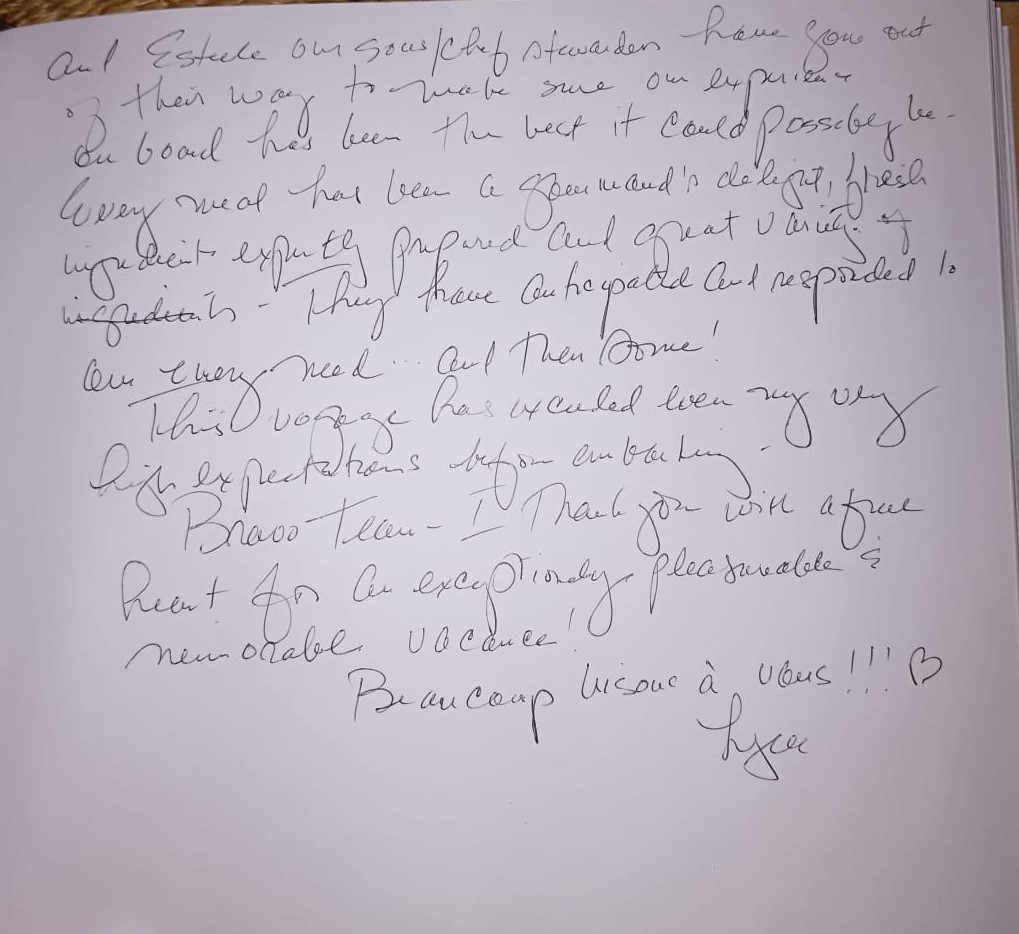 and Estelle our sous/chef stewarden have gone out
of their way to make sure our experience
on board has been the best it could possibly be -
Every meal has been a gourmand's delight, fresh
ingredients expertly prepared and great variety of
ingredients - They have anticipated and responded to
our every need ... and then some!
This voyage has exceeded even my very
high expectations before embarking -
Bravo Team - I Thank you with a full
heart for an exceptionally pleasurable &
memorable vacance!
Beaucoup bisous à vous!!! ♡